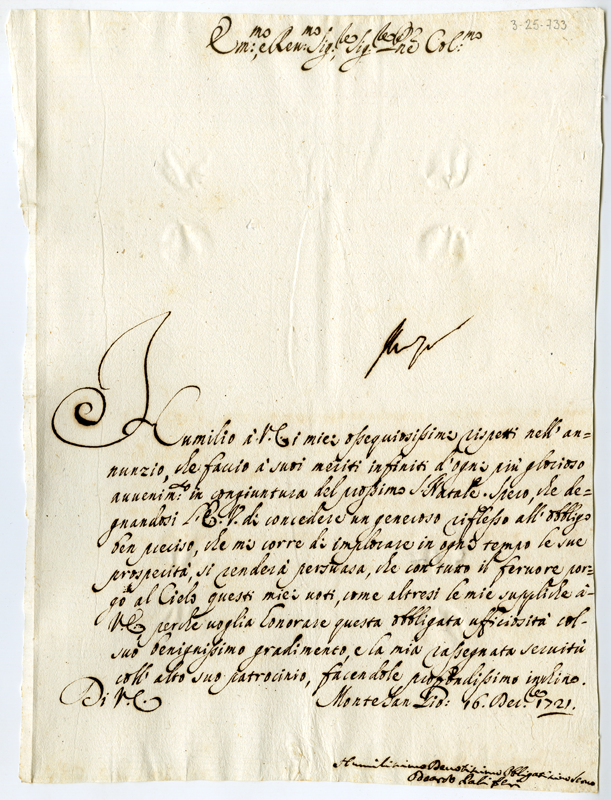 3-25-733
Em:mo, e Reu:mo Sig:re Sig:re, e Pne Col:mo
Humilio à V.E. i miei ossequiosissimi rispetti nell' an=
nunzio, che faccio à suoi meriti infiniti d'ogni più glorioso
auuenim:to in congiuntura del prossimo S. Natale. Spero, che de=
gnandosi l'E.V. di concedere un generoso riflesso all' obbligo
ben preciso, che mi corre di implorare in ogni tempo le sue
prosperità, si renderà persuasa, che con tutto il feruore por=
go al Cielo questi miei uoti, come altresi le mie suppliche à
V.E. perche uoglia honorare questa obbligata ufficiosità col
suo benignissimo gradimento, e la mia rassegnata seruitù
coll' alto suo patrocinio, facendole profondissimo inchino.
Di V.E. Monte San Pio: 16. Dec:bre 1721.
Humilissimo Deuotissimo Obligatissimo Seruo